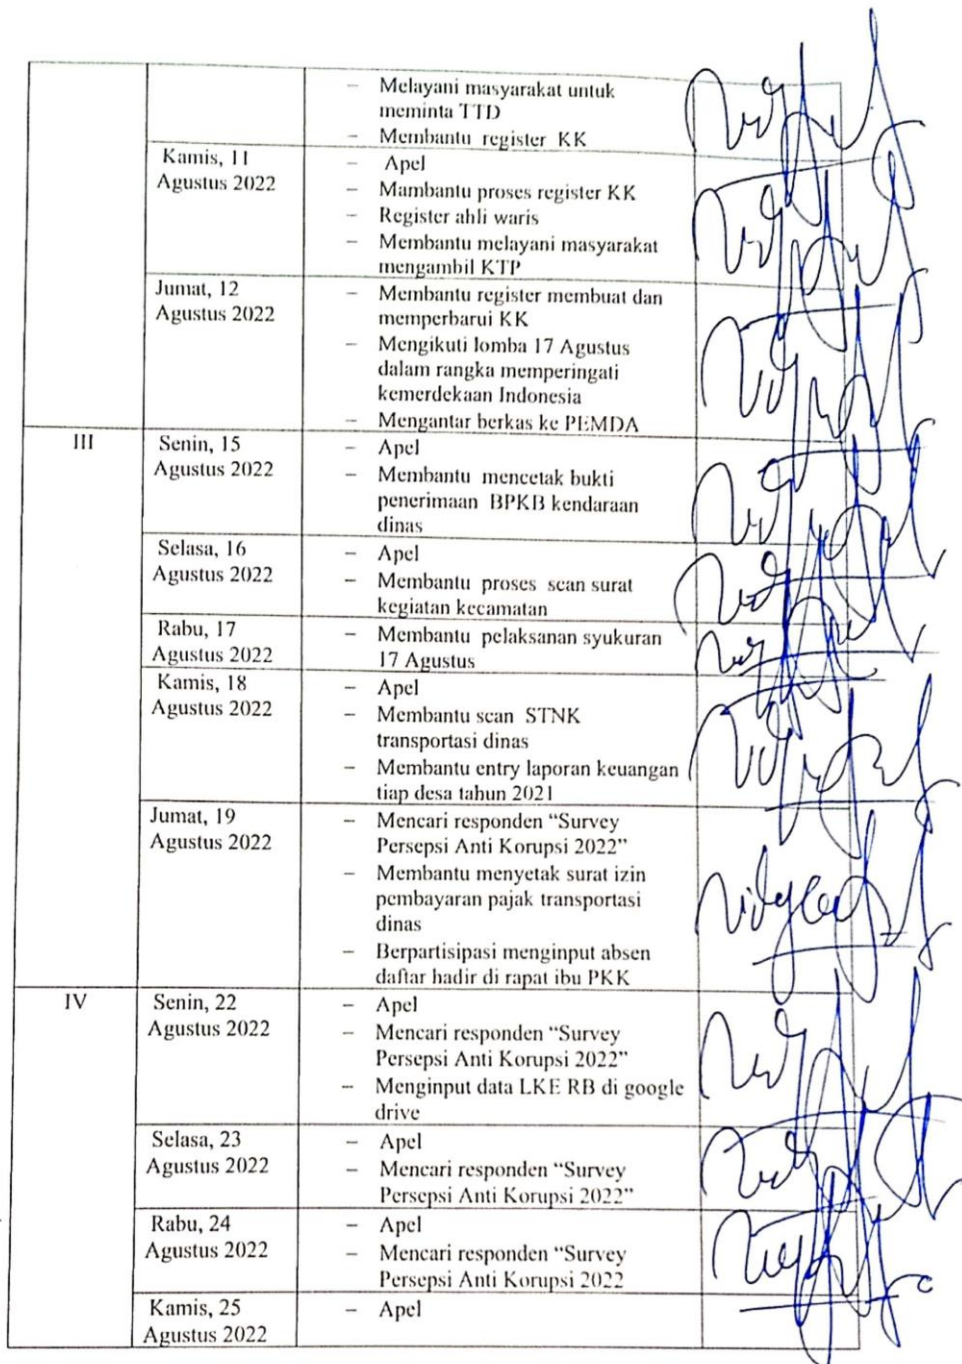 – Melayani masyarakat untuk
meminta TTD
– Membantu register KK
Kamis, 11
Agustus 2022
– Apel
– Mambantu proses register KK
– Register ahli waris
– Membantu melayani masyarakat
mengambil KTP
Jumat, 12
Agustus 2022
– Membantu register membuat dan
memperbarui KK
– Mengikuti lomba 17 Agustus
dalam rangka memperingati
kemerdekaan Indonesia
– Mengantar berkas ke PEMDA
III
Senin, 15
Agustus 2022
– Apel
– Membantu mencetak bukti
penerimaan BPKB kendaraan
dinas
Selasa, 16
Agustus 2022
– Apel
– Membantu proses scan surat
kegiatan kecamatan
Rabu, 17
Agustus 2022
– Membantu pelaksanan syukuran
17 Agustus
Kamis, 18
Agustus 2022
– Apel
– Membantu scan STNK
transportasi dinas
– Membantu entry laporan keuangan
tiap desa tahun 2021
Jumat, 19
Agustus 2022
– Mencari responden “Survey
Persepsi Anti Korupsi 2022”
– Membantu menyetak surat izin
pembayaran pajak transportasi
dinas
– Berpartisipasi menginput absen
daftar hadir di rapat ibu PKK
IV
Senin, 22
Agustus 2022
– Apel
– Mencari responden “Survey
Persepsi Anti Korupsi 2022”
– Menginput data LKE RB di google
drive
Selasa, 23
Agustus 2022
– Apel
– Mencari responden “Survey
Persepsi Anti Korupsi 2022”
Rabu, 24
Agustus 2022
– Apel
– Mencari responden “Survey
Persepsi Anti Korupsi 2022
Kamis, 25
Agustus 2022
– Apel